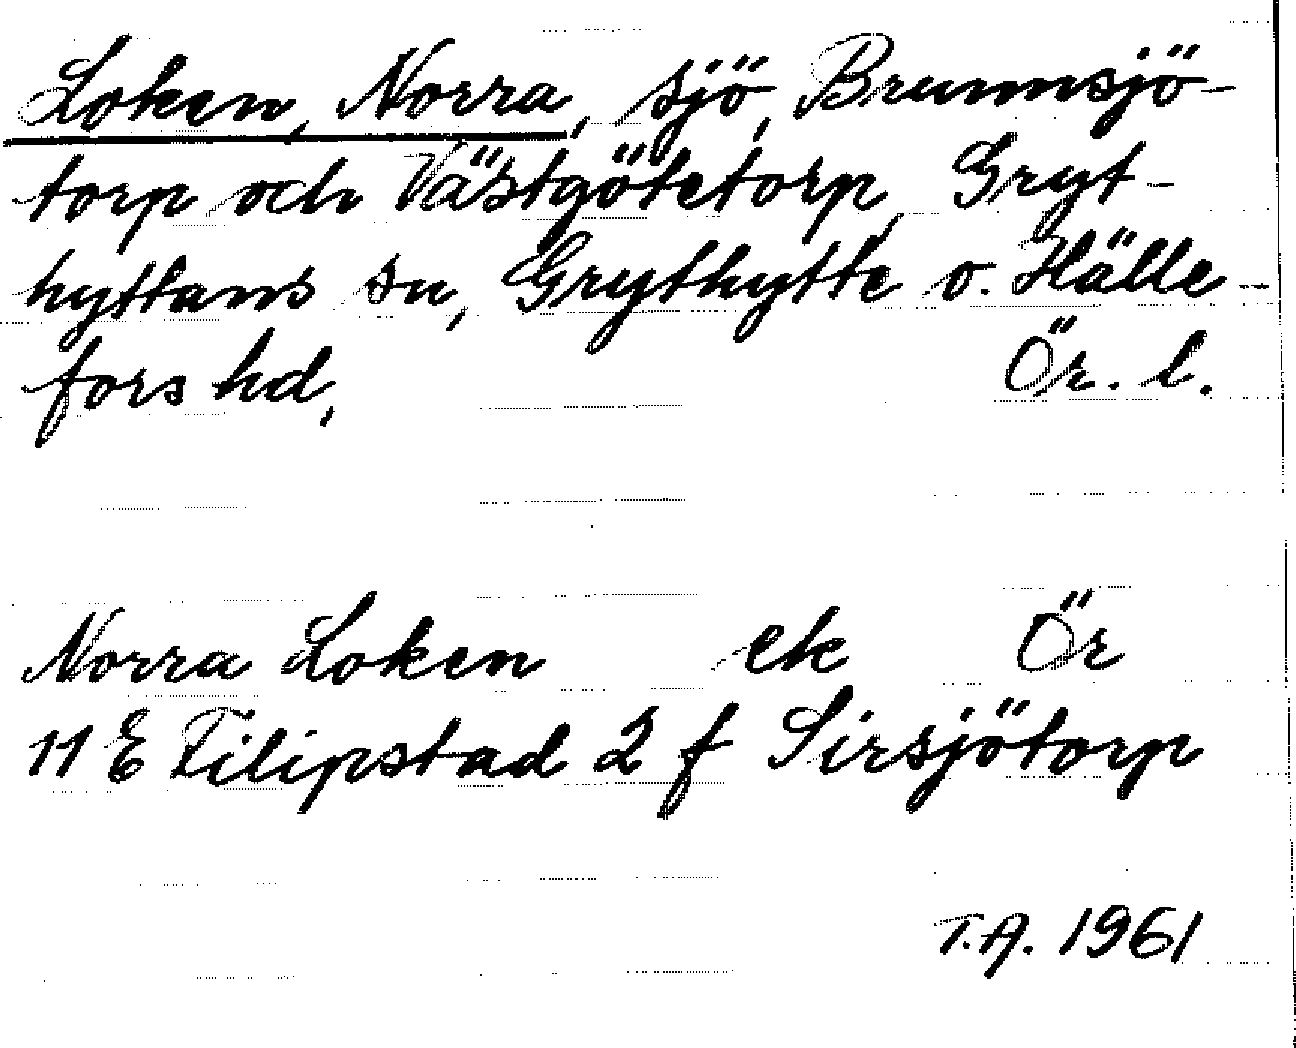 Loken, Norra, sjö, Brunnsjö-
torp och Västgötetorp, Gryt-
hyttans sn, Grythytte o. Hälle-
fors hd, Ör. l.
Norra Loken ek Ör
11 E Filipstad 2 f Sirsjötorp
T.A. 1961